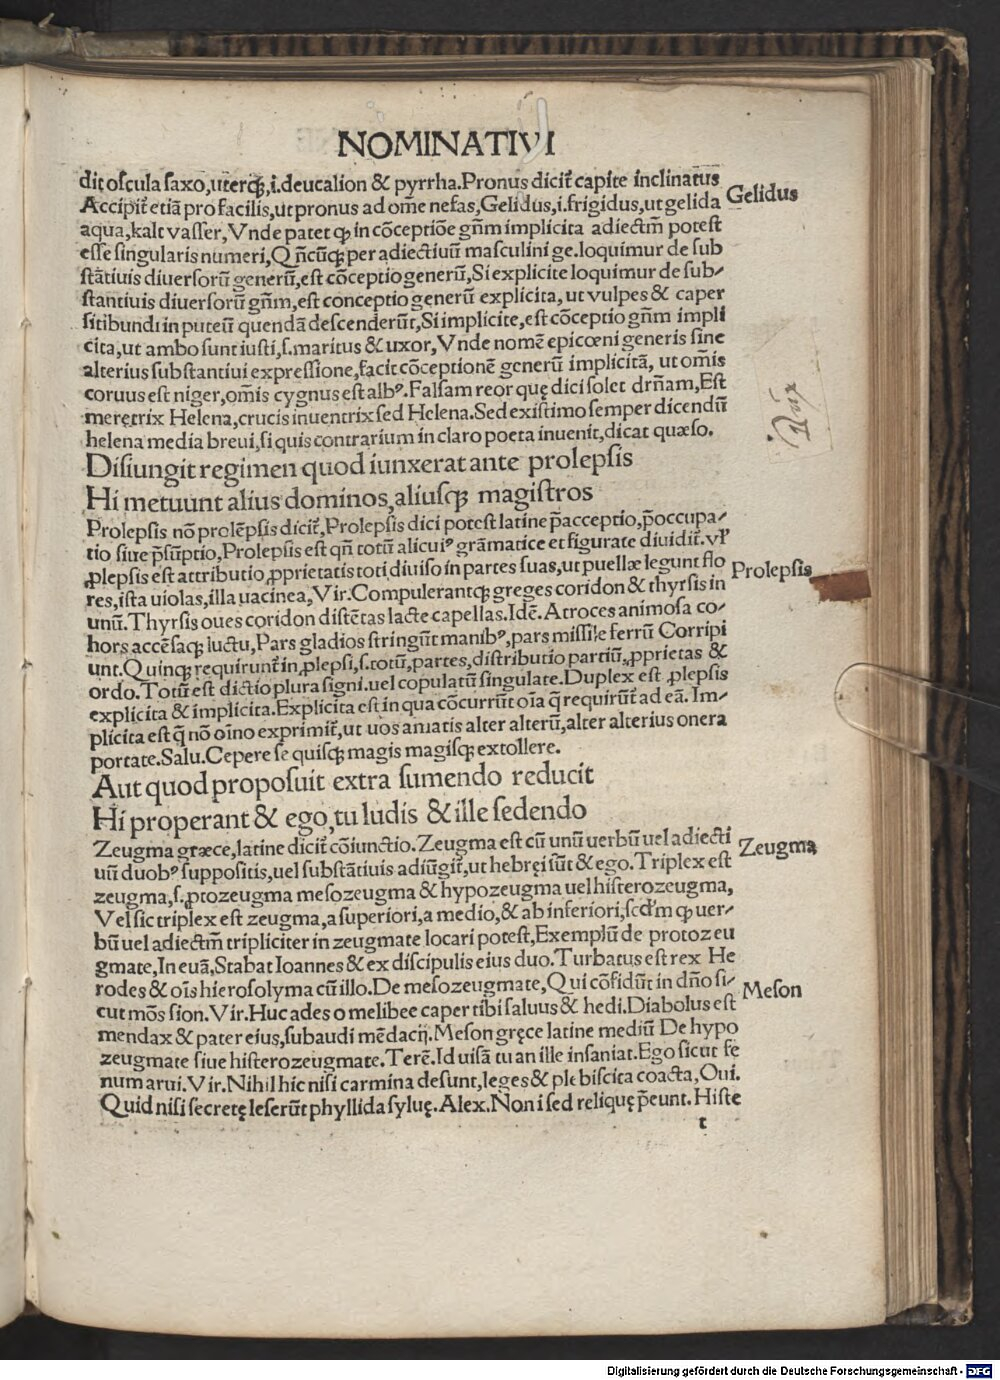 NOMINATIVI
dit oscula saxo, uterqꝫ, i. deucalion & pyrrha. Pronus dicit᷑ capite inclinatus
Gelidus
Accipit᷑ etiã pro facilis, ut pronus ad om̃e nefas, Gelidus, i. frigidus, ut gelida
aqua, kalt vasser, Vnde patet ꝙ in cõceptiõe gñm implicita adiectm̃ potest
esse singularis numeri, Qñcũqꝫ per adiectiuũ masculini ge. loquimur de sub
stãtiuis diuersorũ generũ, est cõceptio generũ, Si explicite loquimur de sub⸗
stantiuis diuersorũ gñm, est conceptio generũ explicita, ut vulpes & caper
sitibundi in puteũ quendã descenderũt, Si implicite, est cõceptio gñm impli
cita, ut ambo sunt iusti, s. maritus & uxor, Vnde nomẽ epicœni generis sine
alterius substantiui expressione, facit cõceptionẽ generũ implicitã, ut om̃is
coruus est niger, om̃is cygnus est albꝰ. Falsam reor quę dici solet drñam, Est
meretrix Helena, crucis inuentrix sed Helena. Sed existimo semper dicendũ
helena media breui, si quis contrarium in claro poeta inuenit, dicat quæso.
Disiungit regimen quod iunxerat ante prolepsis
Hi metuunt alius dominos, aliusqꝫ magistros
Prolepsis nõ prolẽpsis dicit᷑, Prolepsis dici potest latine p̃acceptio, p̃occupa⸗
tio siue p̃sũptio, Prolepsis est qñ totũ alicuiꝰ grãmatice et figurate diuidit᷑. vł
Prolepsis
ꝓlepsis est attributio ꝓprietatis toti diuiso in partes suas, ut puellæ legunt flo
res, ista uiolas, illa uacinea, Vir. Compulerantqꝫ greges coridon & thyrsis in
unũ. Thyrsis oues coridon distẽtas lacte capellas. Idẽ. Atroces animosa co⸗
hors accẽsaqꝫ luctu, Pars gladios stringũt manibꝰ, pars missile ferrũ Corripi
unt. Quinqꝫ requirunt᷑ in ꝓlepsi, s. totũ, partes, distributio partiũ, ꝓprietas &
ordo. Totũ est dictio plura signi. uel copulatũ singulate. Duplex est ꝓlepsis
explicita & implicita. Explicita est in qua cõcurrũt oĩa q̃ requirũt᷑ ad eã. Im⸗
plicita est q̃ nõ oĩno exprimit᷑, ut uos amatis alter alterũ, alter alterius onera
portate. Salu. Cepere se quisqꝫ magis magisqꝫ extollere.
Aut quod proposuit extra sumendo reducit
Hi properant & ego, tu ludis & ille sedendo
Zeugma græce, latine dicit᷑ cõiunctio. Zeugma est cũ unũ uerbũ uel adiecti
Zeugma
uũ duobꝰ suppositis, uel substãtiuis adiũgit᷑, ut hebręi sũt & ego. Triplex est
zeugma, s. ꝓtozeugma mesozeugma & hypozeugma uel histerozeugma,
Vel sic triplex est zeugma, a superiori, a medio, & ab inferiori, scđm ꝙ uer⸗
bũ uel adiectm̃ tripliciter in zeugmate locari potest, Exemplũ de protozeu
gmate, In euã, Stabat Ioannes & ex discipulis eius duo. Turbatus est rex He
rodes & oĩs hierosolyma cũ illo. De mesozeugmate, Qui cõfidũt in dño si⸗
Meson
cut mõs sion. Vir. Huc ades o melibee caper tibi saluus & hedi. Diabolus est
mendax & pater eius, subaudi mẽdacij. Meson gręce latine mediũ De hypo
zeugmate siue histerozeugmate. Terẽ. Id uisũ tu an ille insaniat. Ego sicut fe
num arui. Vir. Nihil hic nisi carmina desunt, leges & plebiscita coacta, Oui.
Quid nisi secretę leserũt phyllida syluę. Alex. Non i sed reliquę p̃eunt. Histe
t
Digitalisierung gefördert durch die Deutsche Forschungsgemeinschaft - DFG